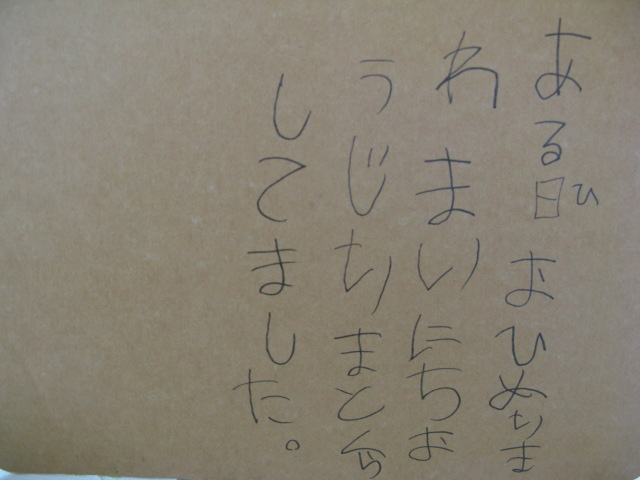 ある日ひ おひめさま
わ まいにちお
うじさまとくら
してました。